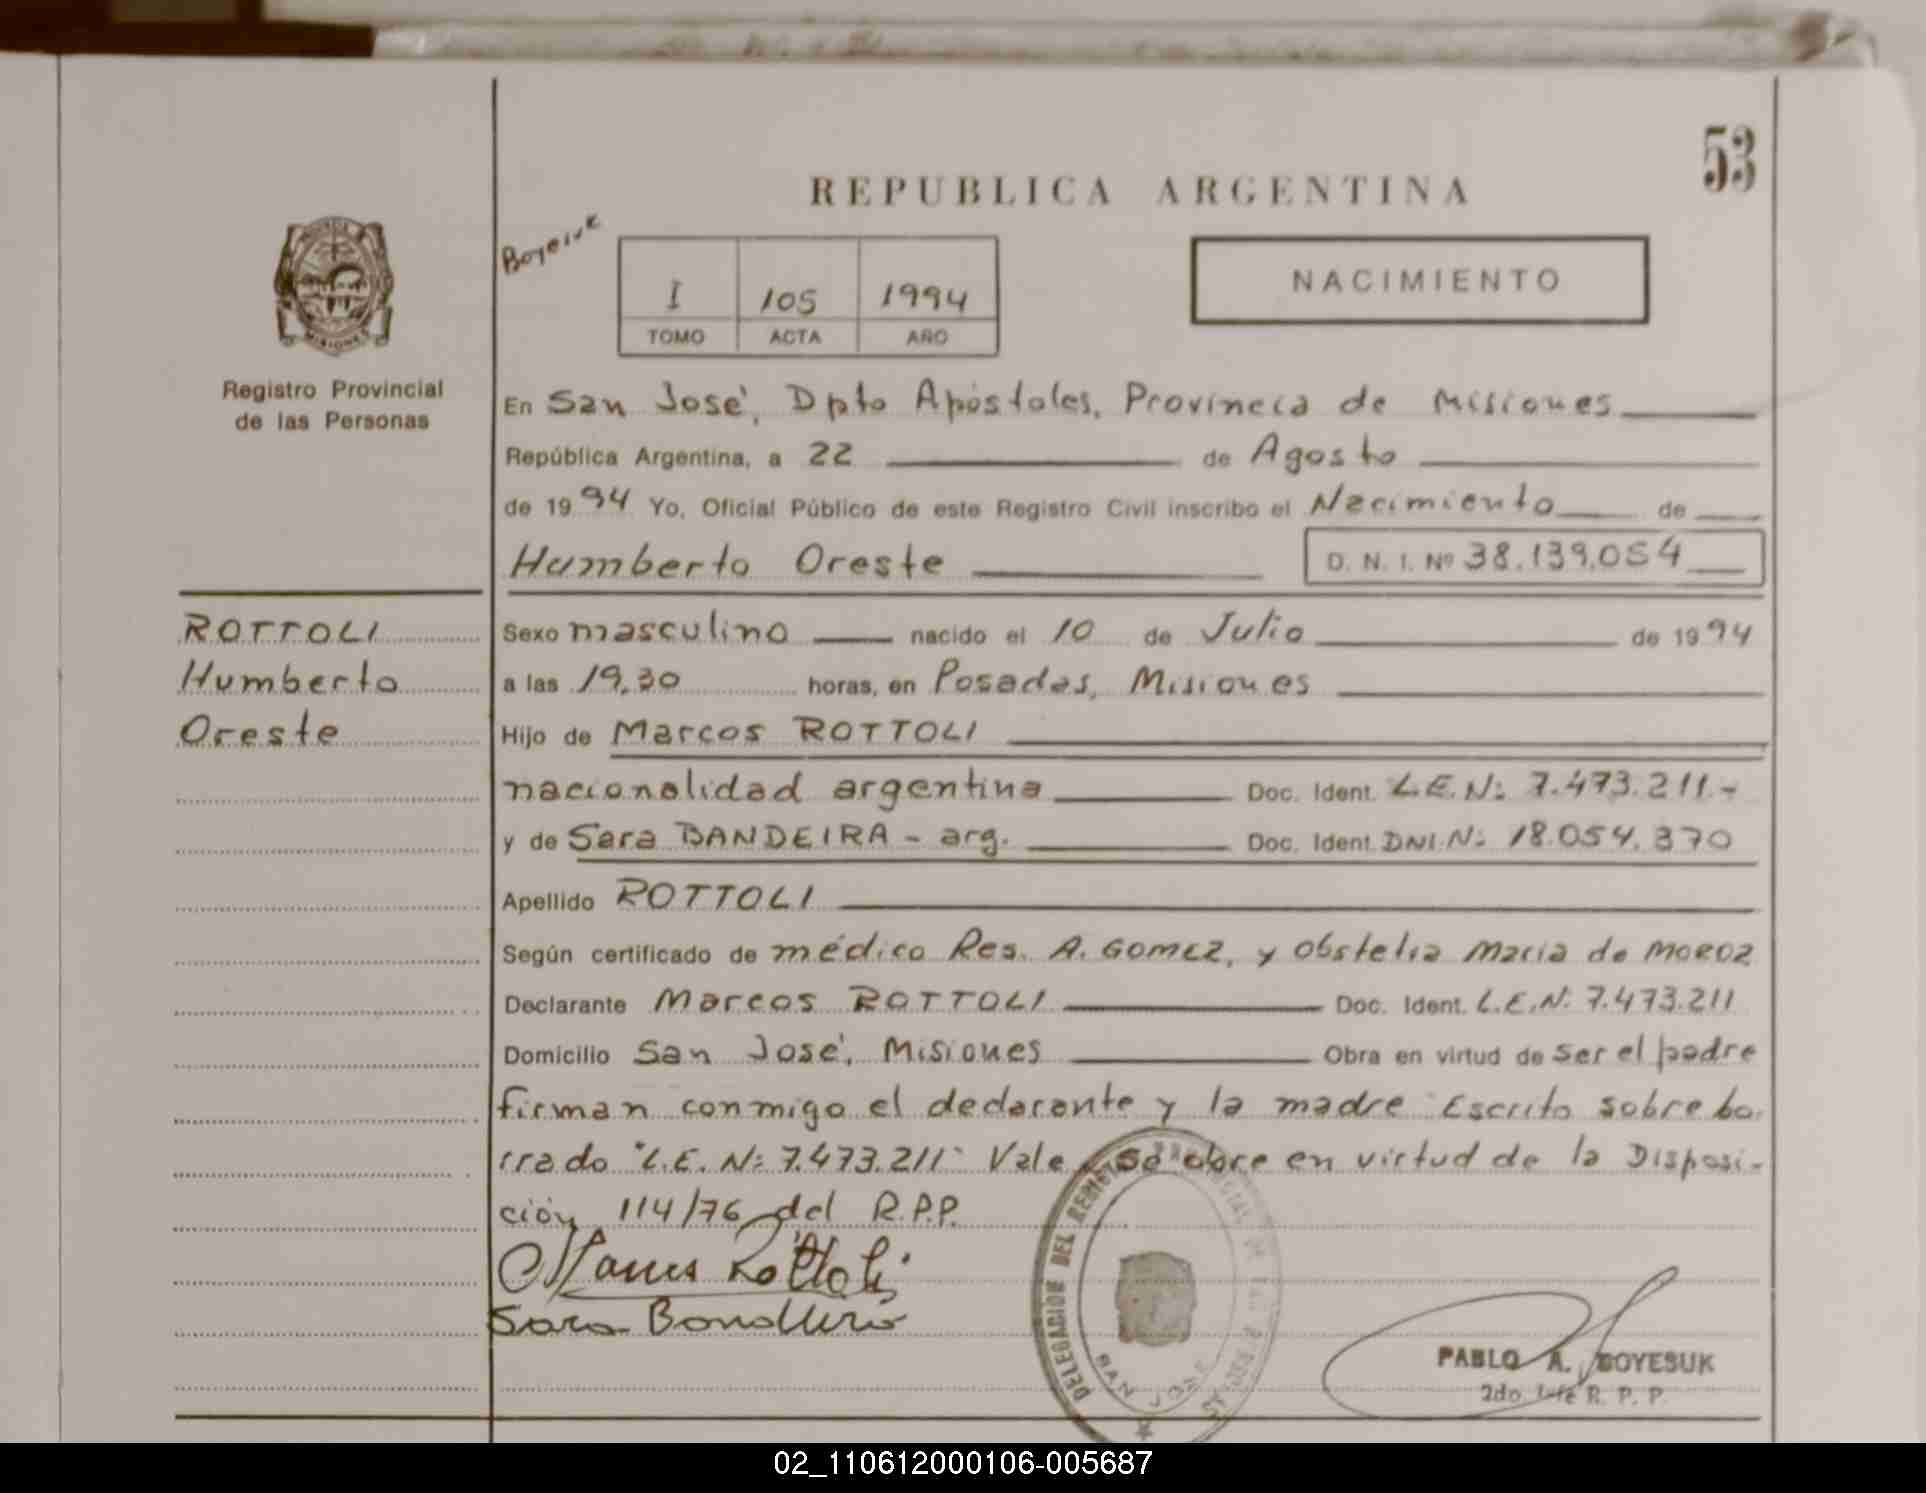 53
REPUBLICA ARGENTINA
NACIMIENTO
I 105 1994
TOMO ACTA AÑO
Registro Provincial
de las Personas
En San José, Dpto Apóstoles, Provincia de Misiones
República Argentina, a 22 de Agosto
de 1994 Yo, Oficial Público de este Registro Civil inscribo el Nacimiento de
Humberto Oreste D. N. I. Nº 38.139.054
ROTTOLI
Humberto
Oreste
Sexo masculino nacido el 10 de Julio de 1994
a las 19,30 horas, en Posadas, Misiones
Hijo de Marcos ROTTOLI
nacionalidad argentina Doc. Ident. L.E.Nº 7.473.211.-
y de Sara BANDEIRA - arg. Doc. Ident. DNI.Nº 18.054.370
Apellido ROTTOLI
Según certificado de médico Res. A. GOMEZ, y Obstetra Maria de MOROZ
Declarante Marcos ROTTOLI Doc. Ident. L.E.Nº 7.473.211
Domicilio San José, Misiones Obra en virtud de ser el padre
firman conmigo el declarante y la madre Escrito sobre bo
rrado "L.E. Nº 7.473.211" Vale se obre en virtud de la Disposi-
ción 114/76 del R.P.P.
Marcos Rottoli
Sara
DELEGACIÓN DEL REGISTRO PROVINCIAL DE LAS PERSONAS
SAN JOSE
PABLO A. BOYESUK
2do Jefe R. P. P.
MISIONES
02_110612000106-005687